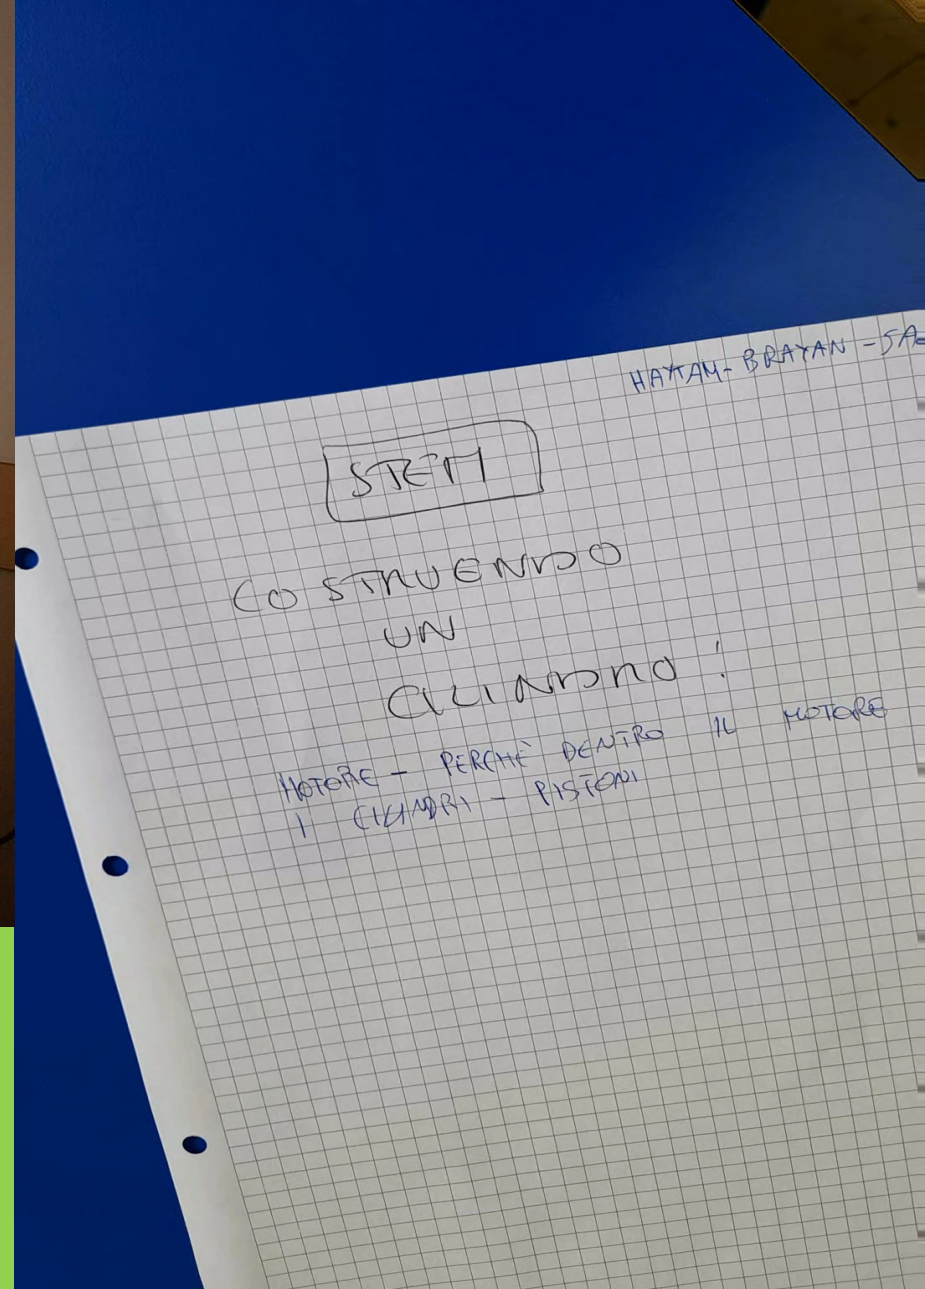 HAYTAM - BRAYAN -
STEM
COSTRUENDO
UN
CILINDRO!
MOTORE - PERCHÈ DENTRO IL MOTORE
I CILINDRI - PISTONI